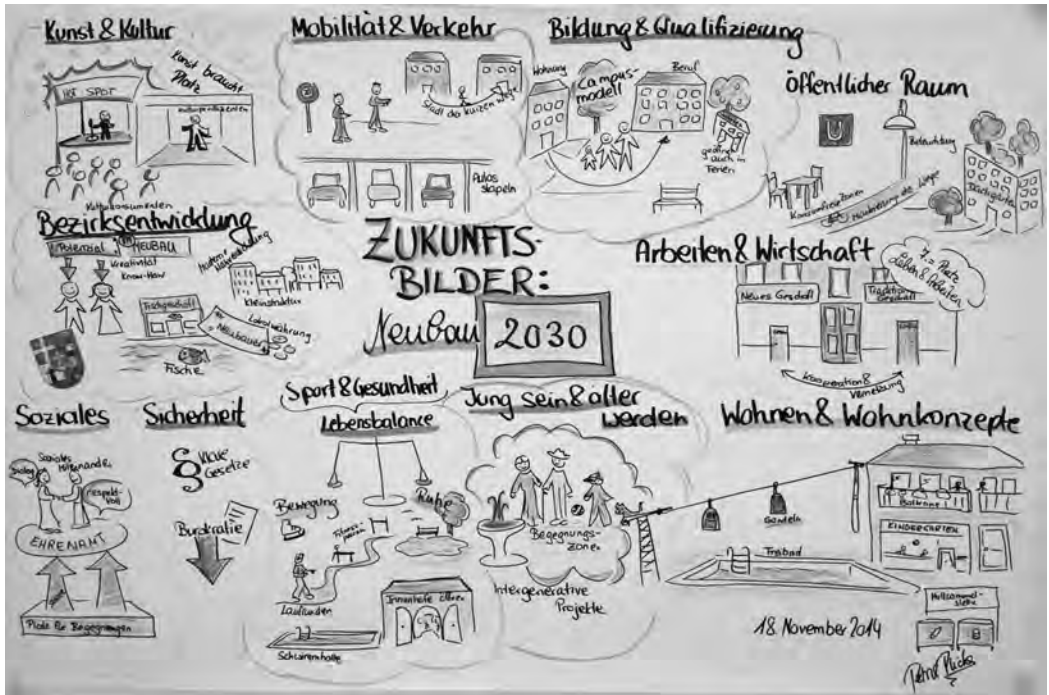 Kunst & Kultur
Kunst braucht
Platz
HOT SPOT
Kulturproduzenten
Kulturkonsumenten
Mobilität & Verkehr
Stadt der kurzen Wege
Autos
stapeln
Bildung & Qualifizierung
Wohnung
Campus-
modell
Beruf
geöffnet
auch in
Ferien
öffentlicher Raum
U
Beleuchtung
Konsumfreie Zonen
der Wege
Dachgärten
Bezirksentwicklung
Potenzial
in
NEUBAU
Kreativität
Know-How
Kleinstruktur
Fischgeschäft
Fische
Lokalwährung
Neubauer
ZUKUNFTS-
BILDER:
Neubau
2030
Arbeiten & Wirtschaft
7. = Platz
Leben & Arbeiten
Neues Geschäft
Geschäft
Kooperation &
Vernetzung
Soziales
Dialog
Soziales
Miteinander
respekt-
voll
EHRENAMT
Platz für Begegnungen
Sicherheit
§ Neue
Gesetze
Bürokratie
Sport & Gesundheit
Lebensbalance
Bewegung
Ruhe
Fitness-
Laufrunden
Schwimmhalle
Innenhöfe öffnen
Jung sein & älter
werden
Begegnungs-
zonen
Intergenerative
Projekte
Wohnen & Wohnkonzepte
Gondeln
Balkone
KINDERGARTEN
Freibad
Müllsammel-
stelle
18. November 2014